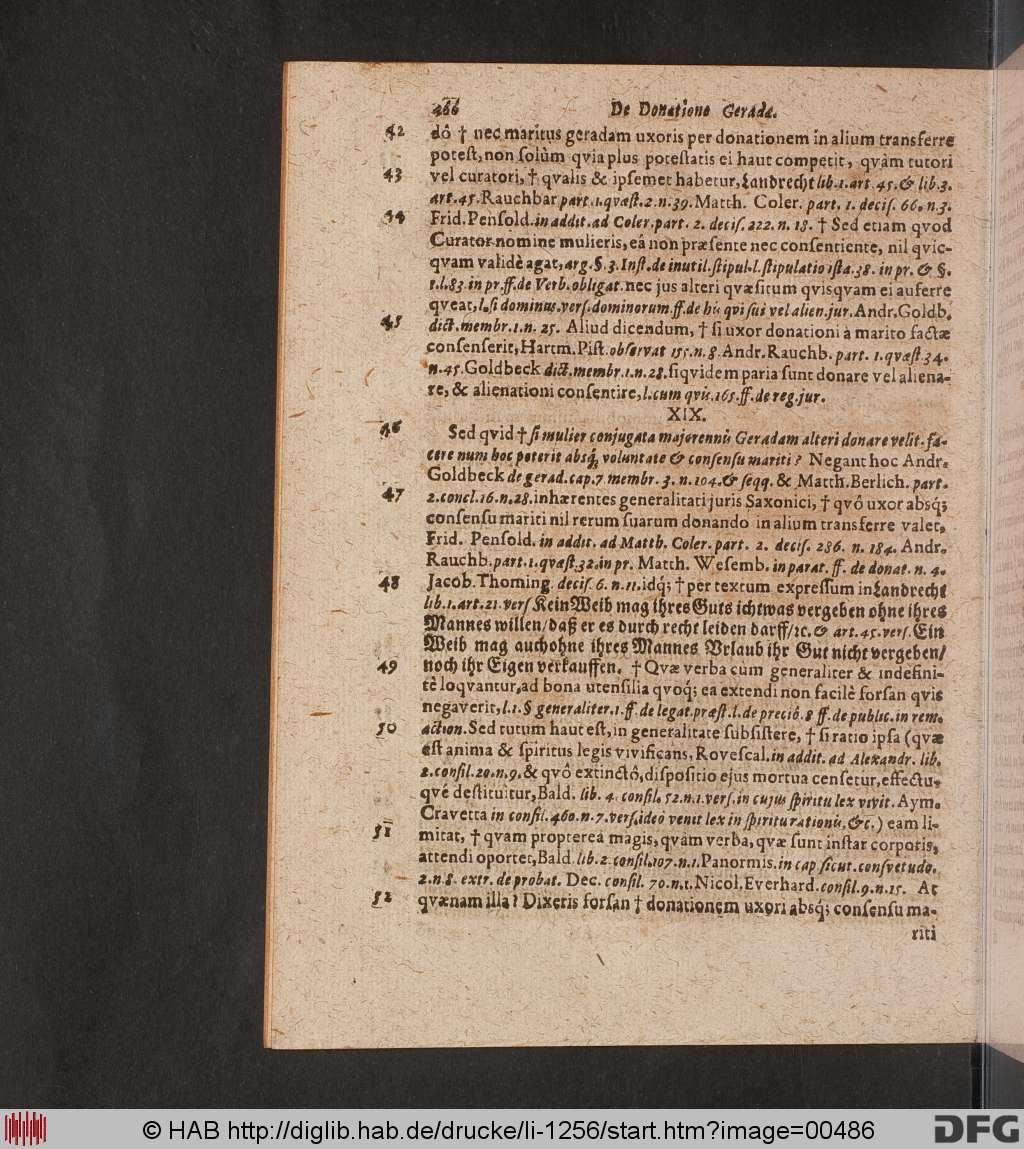 466 De Donatione Geradæ.
42 dô † nec maritus geradam uxoris per donationem in alium transferre
potest, non solùm qvia plus potestatis ei haut competit, qvàm tutori
43 vel curatori, † qvalis & ipsemet habetur, Landrecht lib. 1. art. 45. & lib. 3.
art. 45. Rauchbar part. 1. qvæst. 2. n. 39. Matth. Coler. part. 1. decis. 66. n. 3.
34 Frid. Pensold. in addit. ad Coler. part. 2. decis. 222. n. 18. † Sed etiam qvod
Curator nomine mulieris, eâ non præsente nec consentiente, nil qvic-
qvam validè agat, arg. §. 3. Inst. de inutil. stipul. l. stipulatio ista. 38. in pr. & §.
1. l. 83. in pr. ff. de Verb. obligat. nec jus alteri qvæsitum qvisqvam ei auferre
qveat, l. si dominus. vers. dominorum. ff. de his qvi sui vel alien. jur. Andr. Goldb.
45 dict. membr. 1. n. 25. Aliud dicendum, † si uxor donationi à marito factæ
consenserit, Hartm. Pist. observat 155. n. 8. Andr. Rauchb. part. 1. qvæst. 34.
n. 45. Goldbeck dict. membr. 1. n. 28. siqvidem paria sunt donare vel aliena-
re, & alienationi consentire, l. cum qvis. 165. ff. de reg. jur.
XIX.
46 Sed qvid † si mulier conjugata majorennis Geradam alteri donare velit. fa-
cere num hoc poterit absq; voluntate & consensu mariti? Negant hoc Andr.
Goldbeck de gerad. cap. 7. membr. 3. n. 104. & seqq. & Matth. Berlich. part.
47 2. concl. 16. n. 28. inhærentes generalitati juris Saxonici, † qvô uxor absq;
consensu mariti nil rerum suarum donando in alium transferre valet,
Frid. Pensold. in addit. ad Matth. Coler. part. 2. decis. 286. n. 184. Andr.
Rauchb. part. 1. qvæst. 32. in pr. Matth. Wesemb. in parat. ff. de donat. n. 4.
48 Jacob. Thoming. decis. 6. n. 11. idq; † per textum expressum in Landrecht
lib. 1. art. 21. vers Kein Weib mag ihres Guts ichtwas vergeben ohne ihres
Mannes willen/ daß er es durch recht leiden darff/ ꝛc. & art. 45. vers. Ein
Weib mag auch ohne ihres Mannes Vrlaub ihr Gut nicht vergeben/
49 noch ihr Eigen verkauffen. † Qvæ verba cùm generaliter & indefini-
tè loqvantur, ad bona utensilia qvoq; ea extendi non facilè forsan qvis
negaverit, l. 1. § generaliter. 1. ff. de legat. præst. l. de precib. 8 ff. de public. in rem.
50 action. Sed tutum haut est, in generalitate subsistere, † si ratio ipsa (qvæ
est anima & spiritus legis vivificans, Rovescal. in addit. ad Alexandr. lib.
2. consil. 20. n. 9. & qvô extinctô, dispositio ejus mortua censetur, effectu-
qve destituitur, Bald. lib. 4. consil. 52. n. 1. vers. in cujus spiritu lex vivit. Aym.
Cravetta in consil. 460. n. 7. vers. ideo venit lex in spiritu rationis, &c.) eam li-
51 mitat, † qvam propterea magis, qvàm verba, qvæ sunt instar corporis,
attendi oportet, Bald. lib. 2. consil. 107. n. 1. Panormis. in cap sicut. consvetudo.
2. n 8. extr. de probat. Dec. consil. 70. n. 1. Nicol. Everhard. consil. 9. n. 15. At
52 qvænam illa? Dixeris forsan † donationem uxori absq; consensu ma-
riti
© HAB http://diglib.hab.de/drucke/li-1256/start.htm?image=00486
DFG